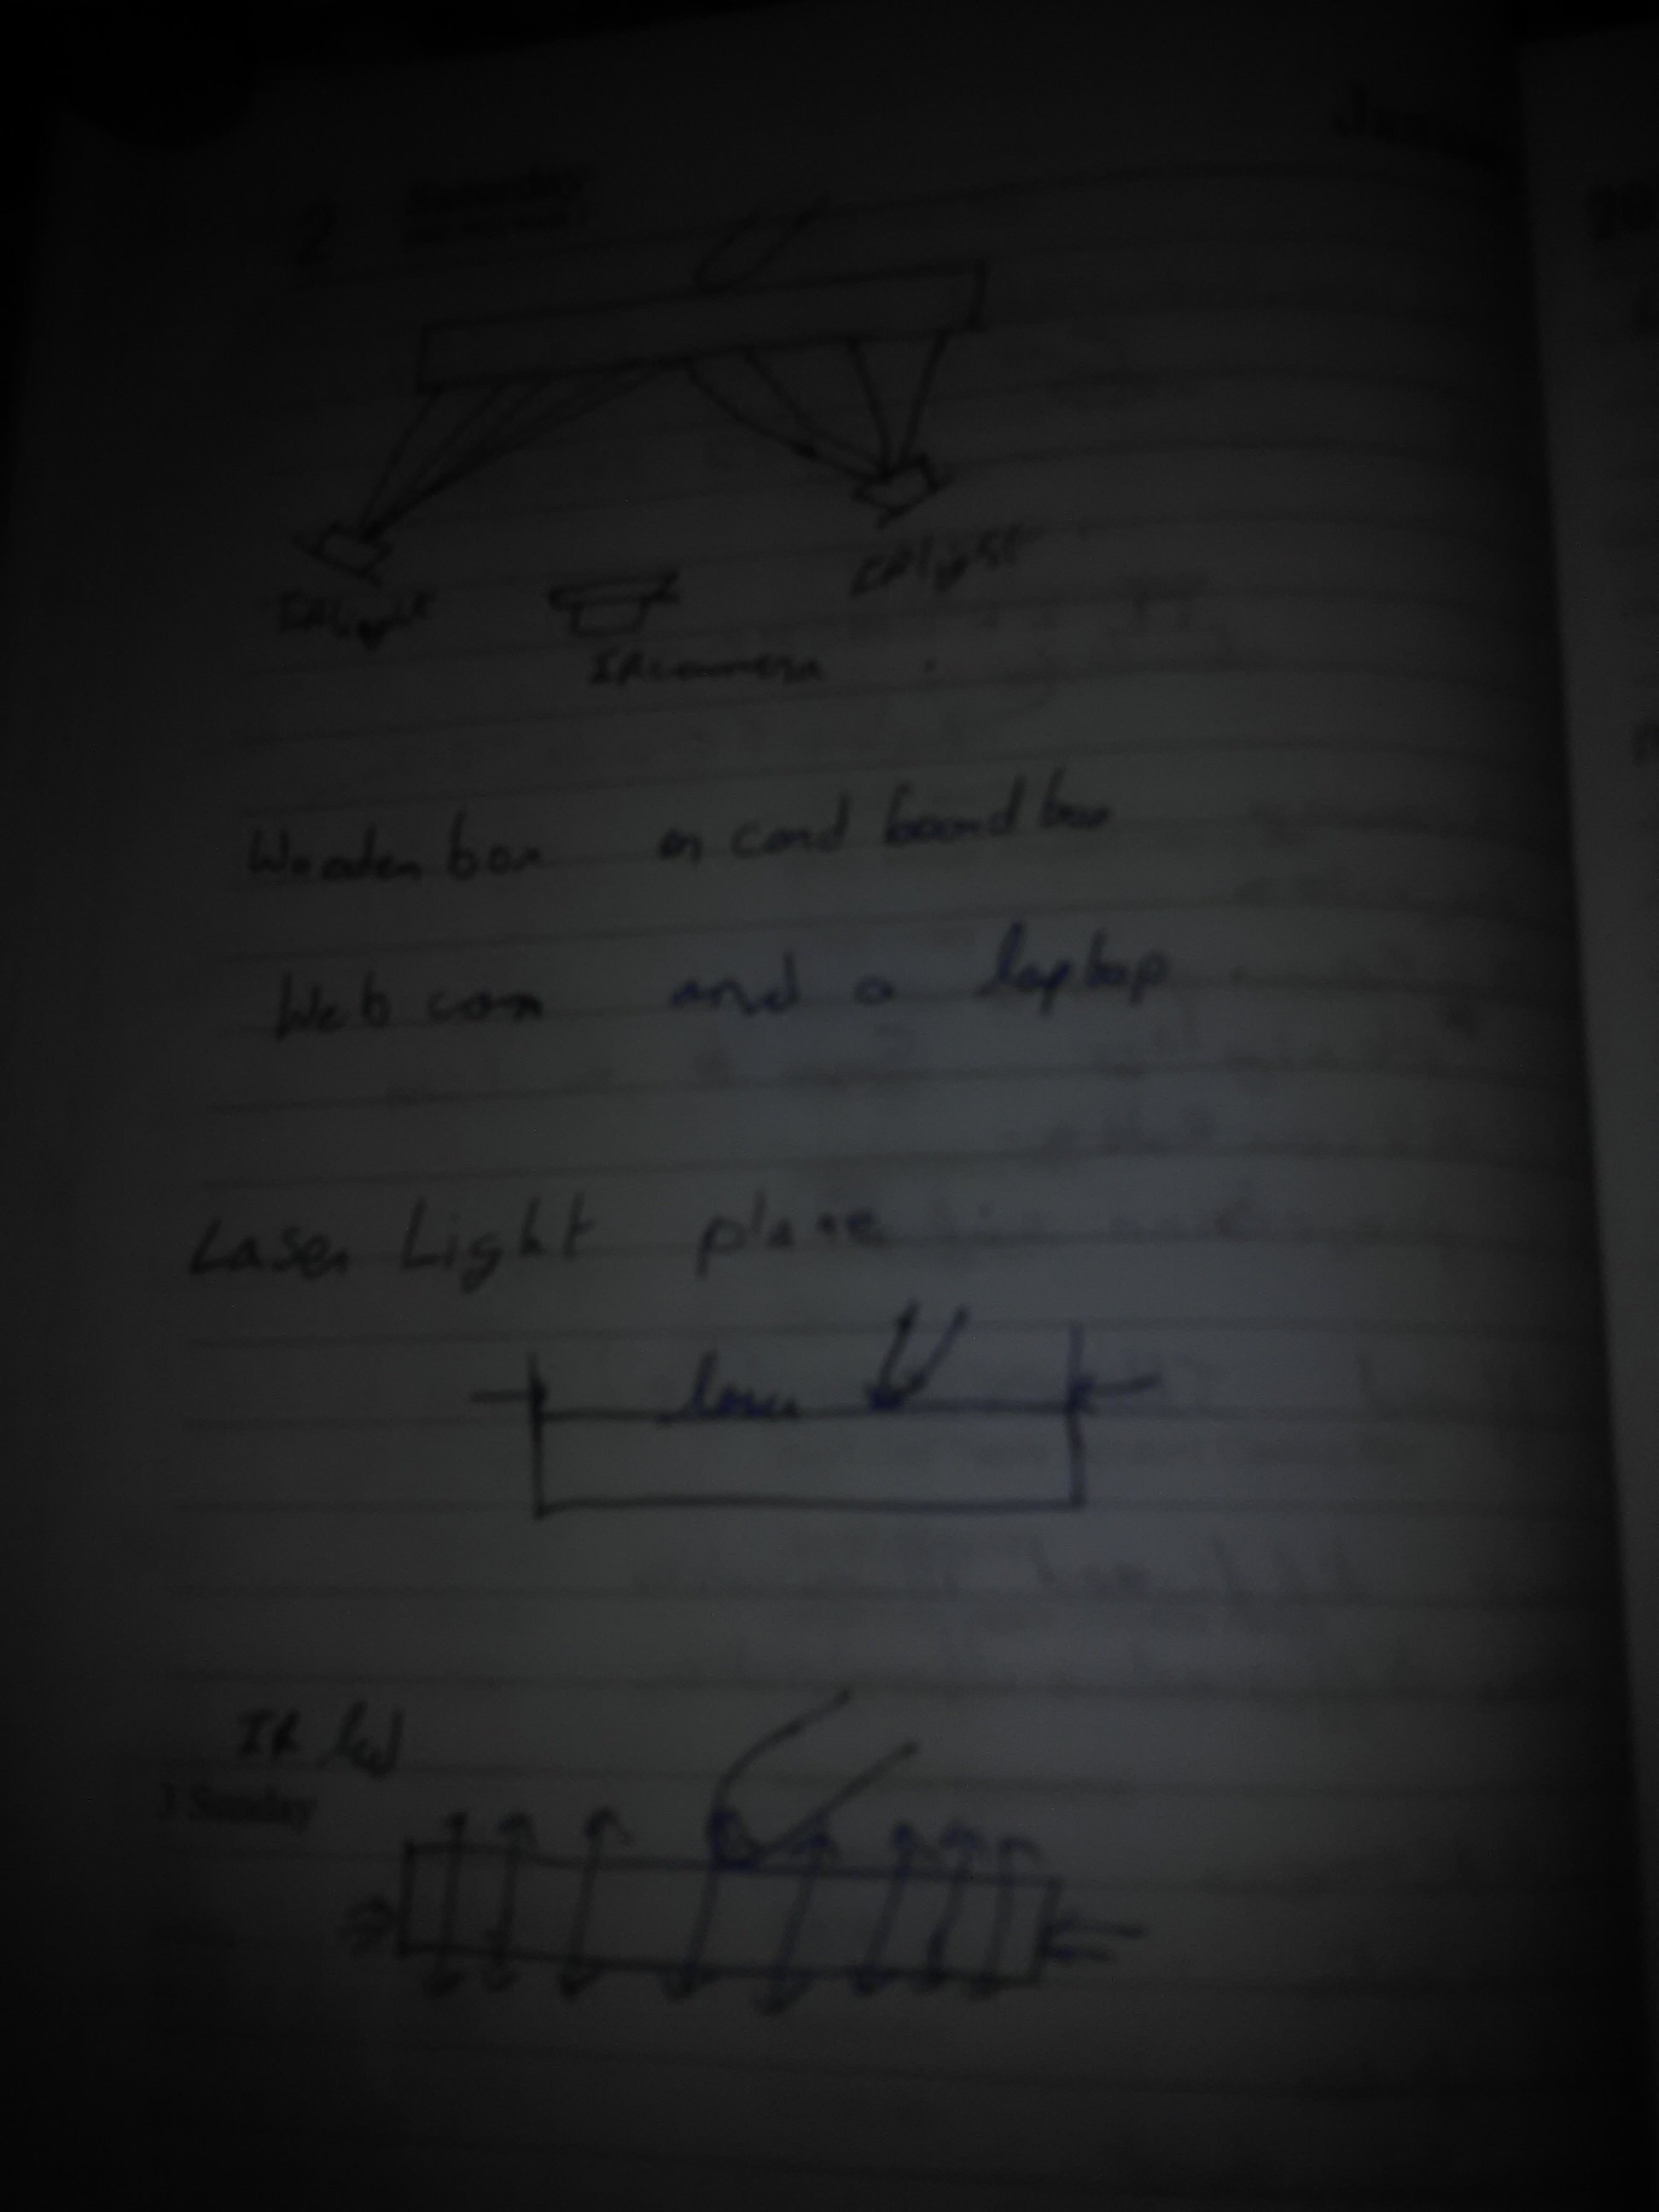 2
IR light
IR light
IR camera
Wooden box or card board box
Web cam and a laptop
Laser Light plane
IR led
3 Sunday